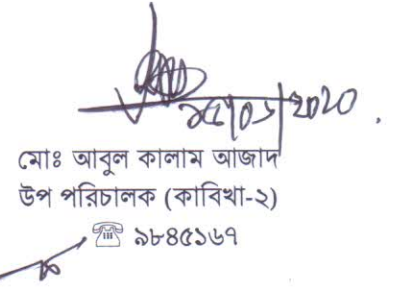 ২৫/০১/২০২০
মোঃ আবুল কালাম আজাদ
উপ পরিচালক (কাবিখা-২)
☎ ৯৮৪৫১৬৭